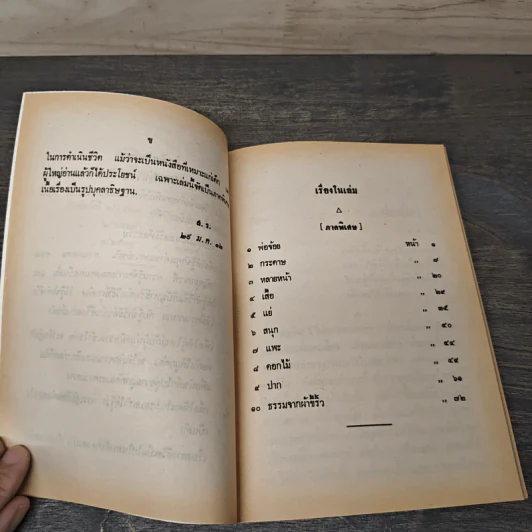 ข
ในการดำเนินชีวิต แม้ว่าจะเป็นหนังสือที่เหมาะแก่เด็ก
ผู้ใหญ่อ่านแล้วก็ได้ประโยชน์ เฉพาะเล่มนี้จัดเป็นภาคพิเศษ
เนื้อเรื่องเป็นรูปบุคลาธิษฐาน.
ส. ร.
๒๙ ม.ค. ๑๒
เรื่องในเล่ม
[ ภาคพิเศษ ]
๑ พ่อจ้อย หน้า ๑
๒ กระดาษ " ๗
๓ หลายหน้า " ๒๐
๔ เสื้อ " ๒๙
๕ แย่ " ๓๕
๖ สนุก " ๔๐
๗ แพะ " ๔๔
๘ ดอกไม้ " ๔๙
๙ ปาก " ๖๑
๑๐ ธรรมจากผ้าขี้ริ้ว " ๗๒